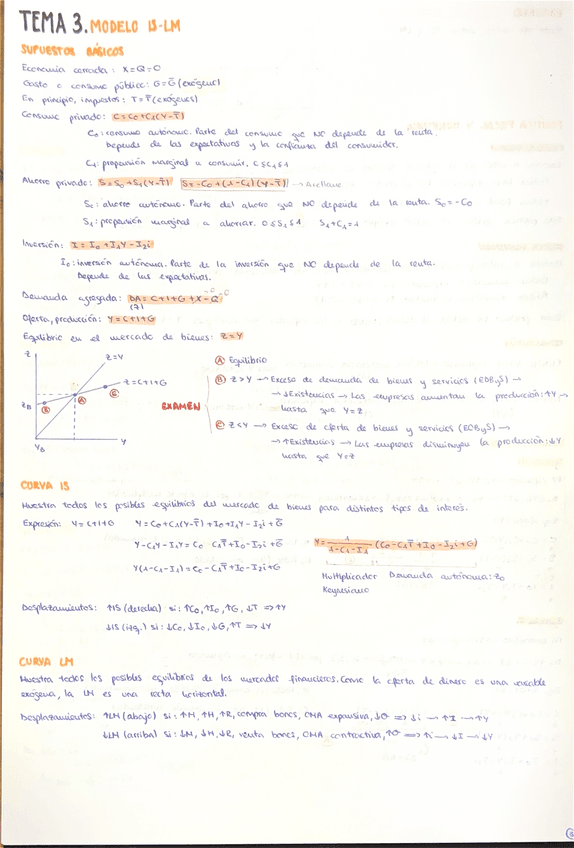 TEMA 3. MODELO IS-LM
SUPUESTOS BÁSICOS
Economía cerrada: X=Q=0
Gasto o consumo público: G=G̅ (exógeno)
En principio, impuestos: T=T̅ (exógenos)
Consumo privado: C=C₀+C₁(Y-T̅)
C₀: consumo autónomo. Parte del consumo que NO depende de la renta.
Depende de las expectativas y la confianza del consumidor.
C₁: propensión marginal a consumir. 0≤C₁≤1
Ahorro privado: S=S₀+S₁(Y-T̅) S=-C₀+(1-C₁)(Y-T̅)
S₀: ahorro autónomo. Parte del ahorro que NO depende de la renta. S₀=-C₀
S₁: propensión marginal a ahorrar. 0≤S₁≤1 S₁+C₁=1
Inversión: I=I₀+I₁Y-I₂i
I₀: inversión autónoma. Parte de la inversión que NO depende de la renta.
Depende de las expectativas.
Demanda agregada: DA=C+I+G+X-Q
(Z)
Oferta, producción: Y=C+I+G
Equilibrio en el mercado de bienes: Z=Y
Z
Z=Y
Z=C+I+G
Z_B
B
A
C
Y_B
Y
EXAMEN
A Equilibrio
B Z>Y → Exceso de demanda de bienes y servicios (EDByS) →
→ ↓Existencias → Las empresas aumentan la producción: ↑Y →
hasta que Y=Z
C Z<Y → Exceso de oferta de bienes y servicios (EOByS) →
→ ↑Existencias → Las empresas disminuyen la producción: ↓Y
hasta que Y=Z
CURVA IS
Muestra todos los posibles equilibrios del mercado de bienes para distintos tipos de interés.
Expresión: Y=C+I+G Y=C₀+C₁(Y-T̅)+I₀+I₁Y-I₂i+G̅
Y-C₁Y-I₁Y=C₀-C₁T̅+I₀-I₂i+G̅ Y=1/(1-C₁-I₁) (C₀-C₁T̅+I₀-I₂i+G)
Y(1-C₁-I₁)=C₀-C₁T̅+I₀-I₂i+G̅
Multiplicador Demanda autónoma: Z₀
Keynesiano
Desplazamientos: ↑IS (derecha) si: ↑C₀, ↑I₀, ↑G, ↓T ⇒ ↑Y
↓IS (izq.) si: ↓C₀, ↓I₀, ↓G, ↑T ⇒ ↓Y
CURVA LM
Muestra todos los posibles equilibrios de los mercados financieros. Como la oferta de dinero es una variable
exógena, la LM es una recta horizontal.
Desplazamientos: ↑LM (abajo) si: ↑M, ↑H, ↑R, compra bonos, OMA expansiva, ↓θ ⇒ ↓i → ↑I → ↑Y
↓LM (arriba) si: ↓M, ↓H, ↓R, venta bonos, OMA contractiva, ↑θ ⇒ ↑i → ↓I → ↓Y